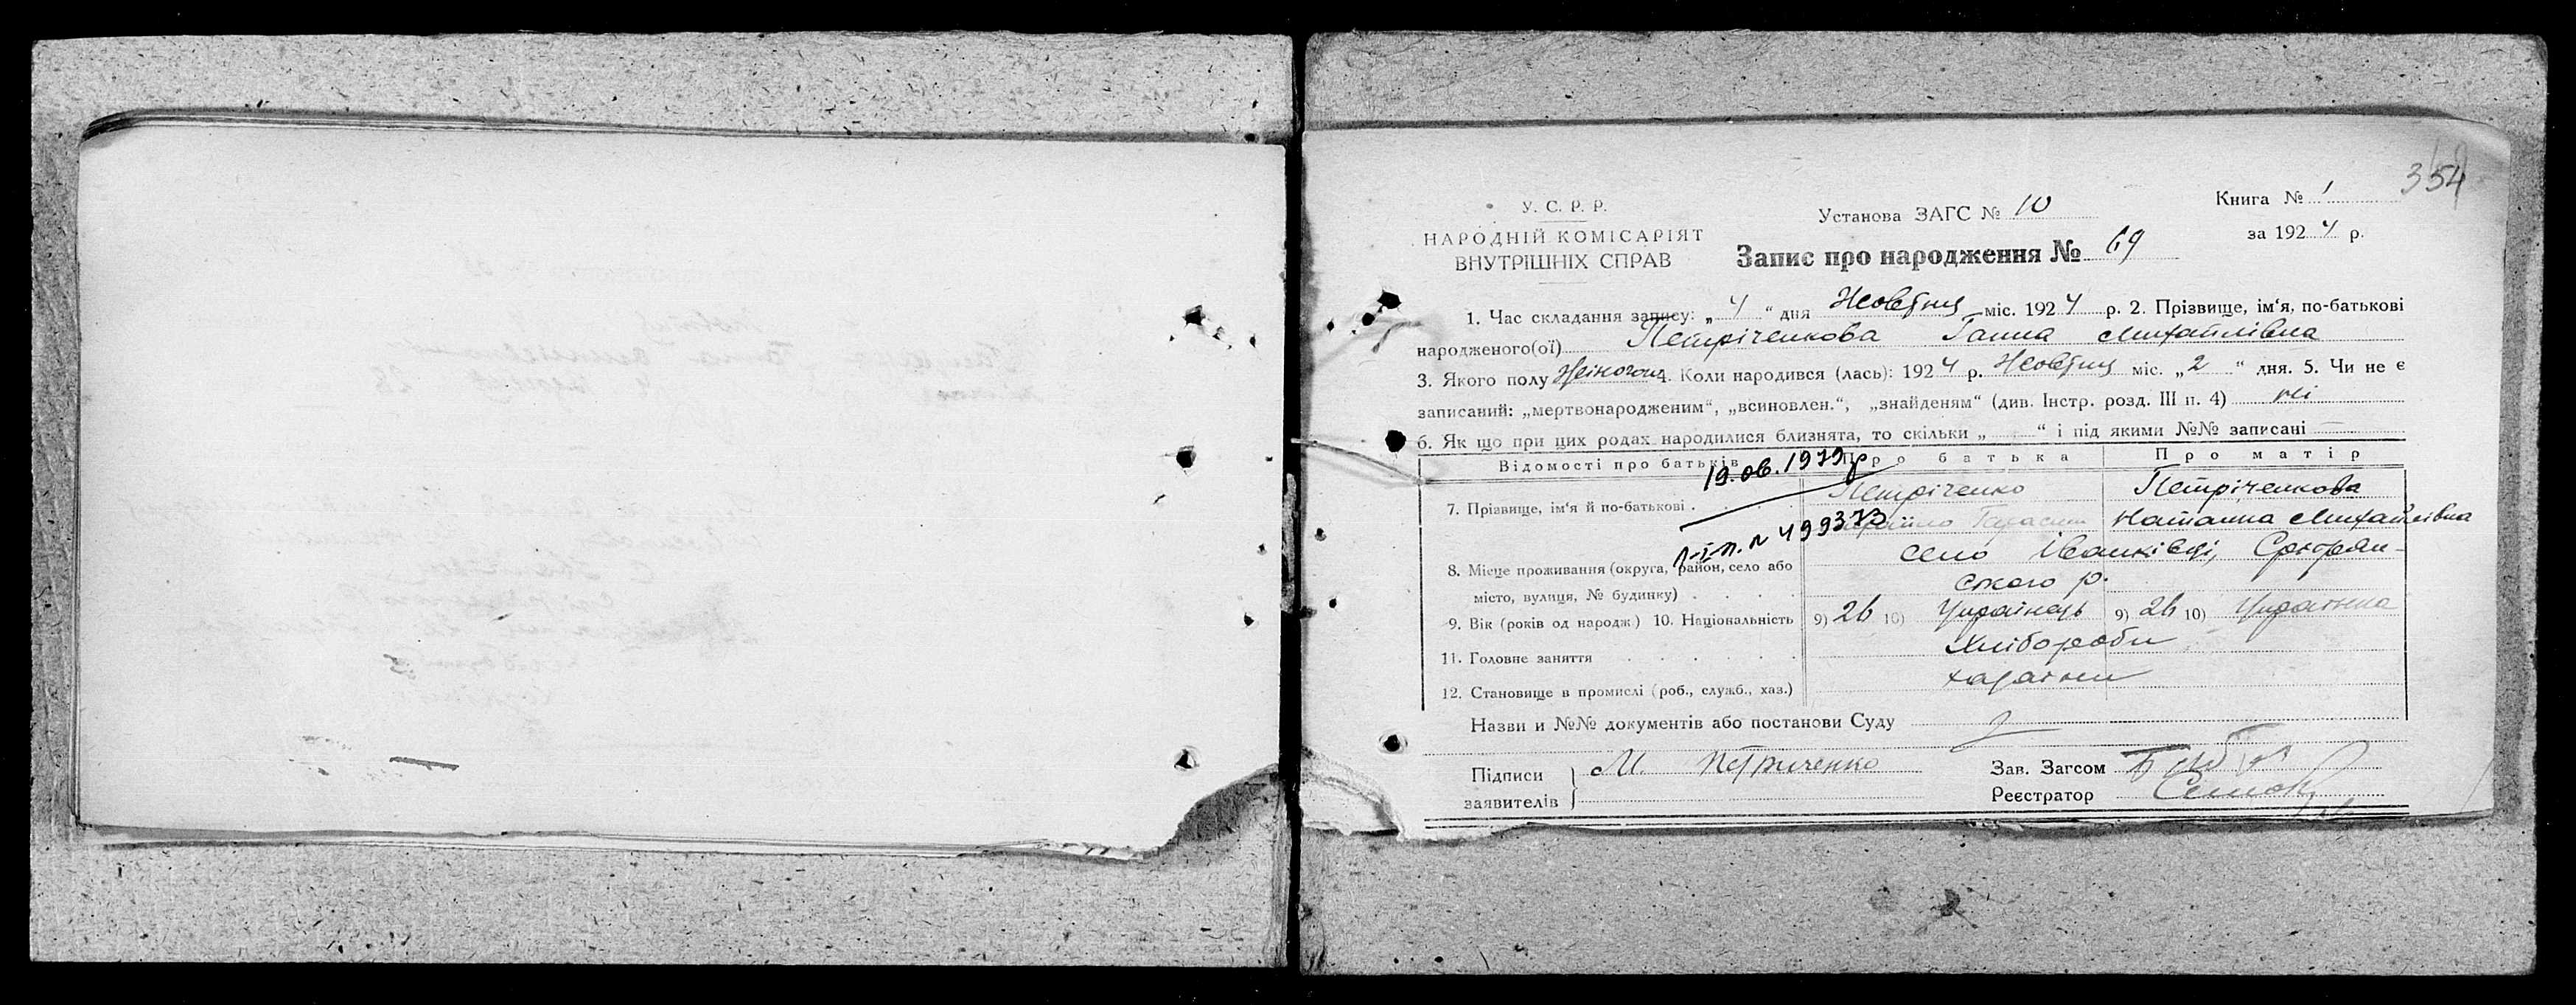 354
У. С. Р. Р.
НАРОДНІЙ КОМІСАРІЯТ
ВНУТРІШНІХ СПРАВ
Установа ЗАГС № 10
Книга № 1
за 1924 р.
Запис про народження № 69
1. Час складання запису: „4“ дня Жовтня міс. 1924 р. 2. Прізвище, ім‘я, по-батькові
народженого(ої) Петріченкова Ганна Михайлівна
3. Якого полу Жіночого 4. Коли народився (лась): 1924 р. Жовтня міс. „2“ дня. 5. Чи не є
записаний: „мертвонародженим“, „всиновлен.“, „знайденям“ (див. Інстр. розд. III п. 4) ні
6. Як що при цих родах народилися близнята, то скільки „ “ і під якими №№ записані —
Відомості про батьків Про батька Про матір
19.06.1979р
7. Прізвище, ім‘я й по-батькові Петріченко Петріченкова
Наталка Михайлівна
499373
8. Місце проживання (округа, район, село або село Іванківці,
місто, вулиця, № будинку) ського р.
9. Вік (років од народж.) 10. Національність 9) 26 10) Українець 9) 26 10) Українка
11. Головне заняття Хлібороби
12. Становище в промислі (роб., служб., хаз.) хазаїни
Назви и №№ документів або постанови Суду
Підписи
заявителів
М. Петриченко
Зав. Загсом
Реєстратор